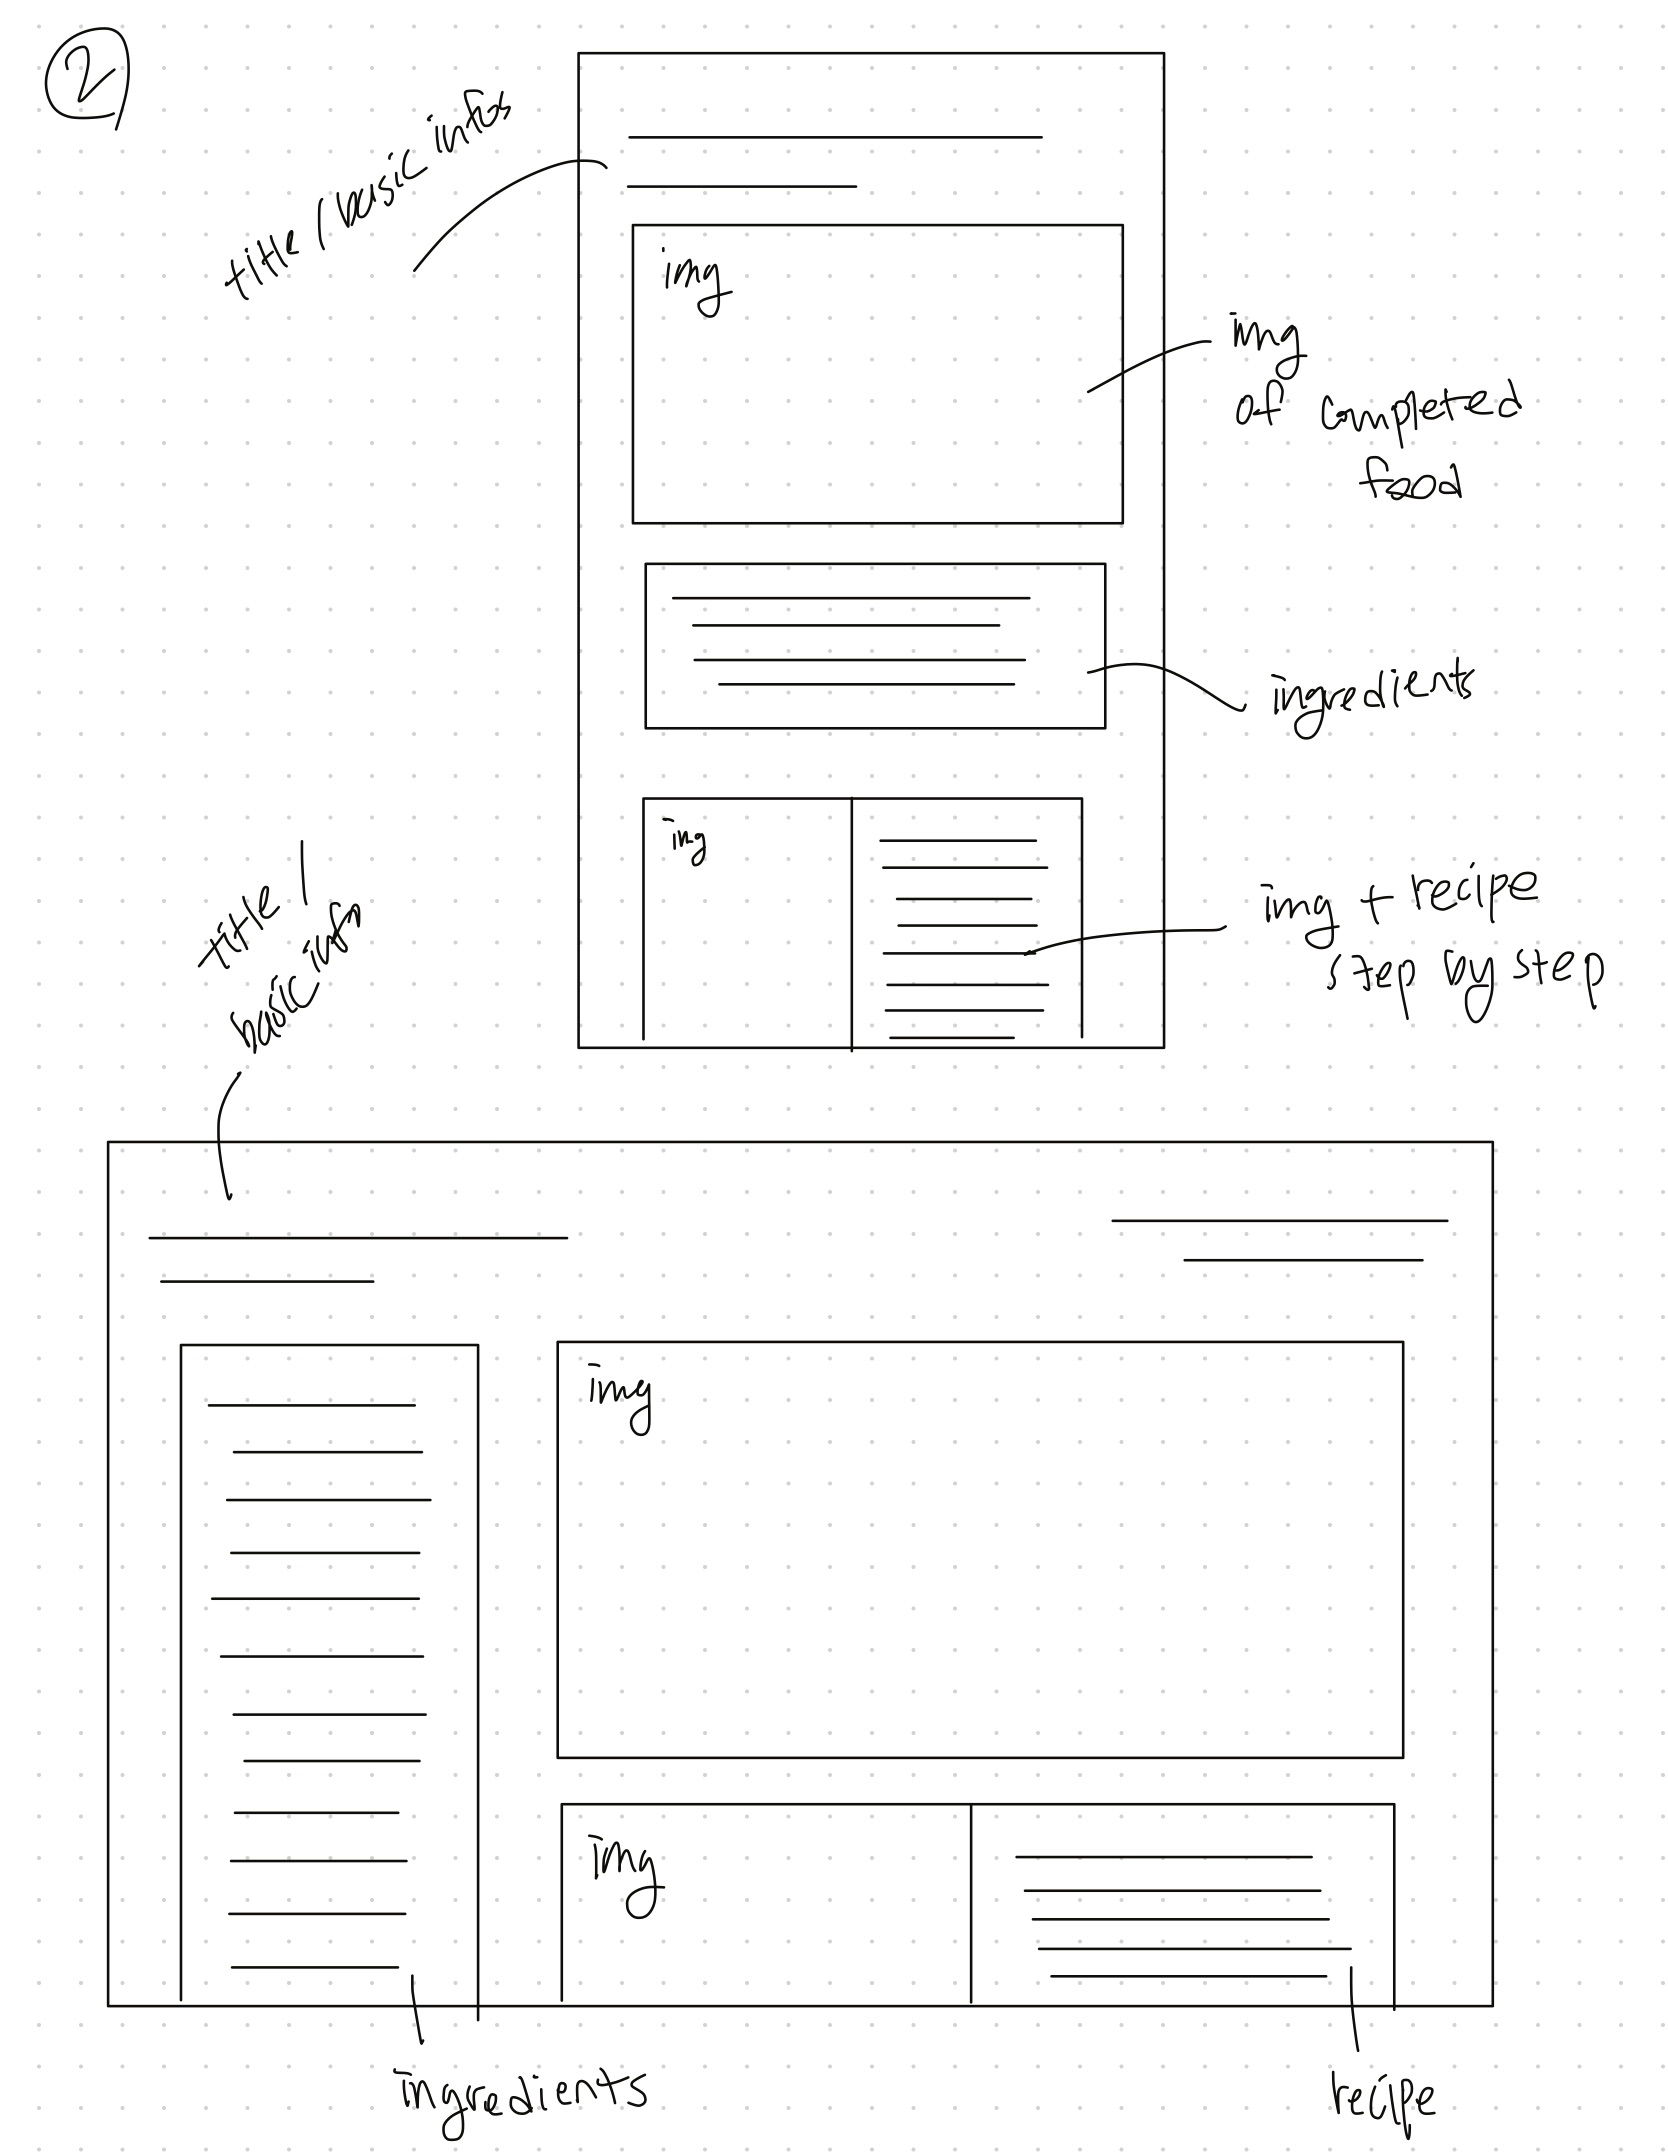 2
title / basic infos
img
img
of completed
food
ingredients
img
img + recipe
step by step
title /
basic info
img
img
ingredients
recipe